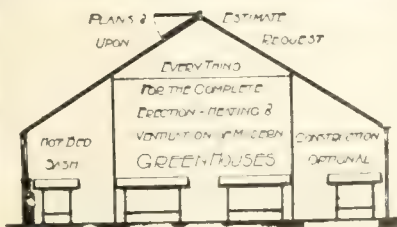 PLANS & ESTIMATE
UPON REQUEST
EVERYTHING
FOR THE COMPLETE
ERECTION - HEATING &
VENTILATION OF MODERN
GREENHOUSES
HOT BED
SASH
CONSTRUCTION
OPTIONAL